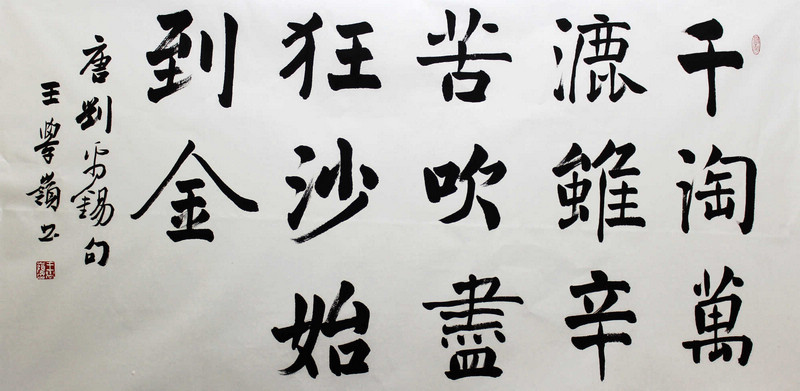 千淘萬
漉雖辛
苦吹盡
狂沙始
到金
唐劉禹錫句
王學嶺書